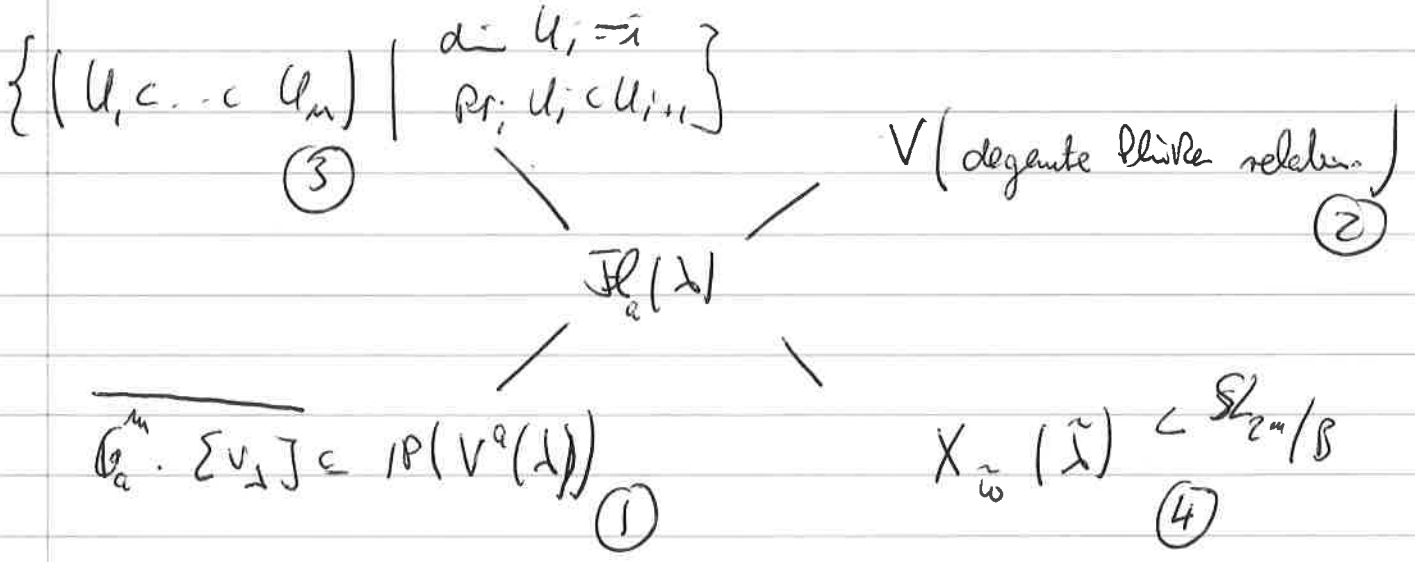 { (U₁ ⊂ ... ⊂ Uₙ) | dim Uᵢ = i
prᵢ Uᵢ ⊂ Uᵢ₊₁ }
③
V( degenerate Plücker relation )
②
Fℓₐ(λ)
G̅ₐᵐ . [v_λ] ⊆ ℙ(Vᵃ(λ))
①
X_w̃ (λ̃) ⊂ SL₂ₙ/B
④